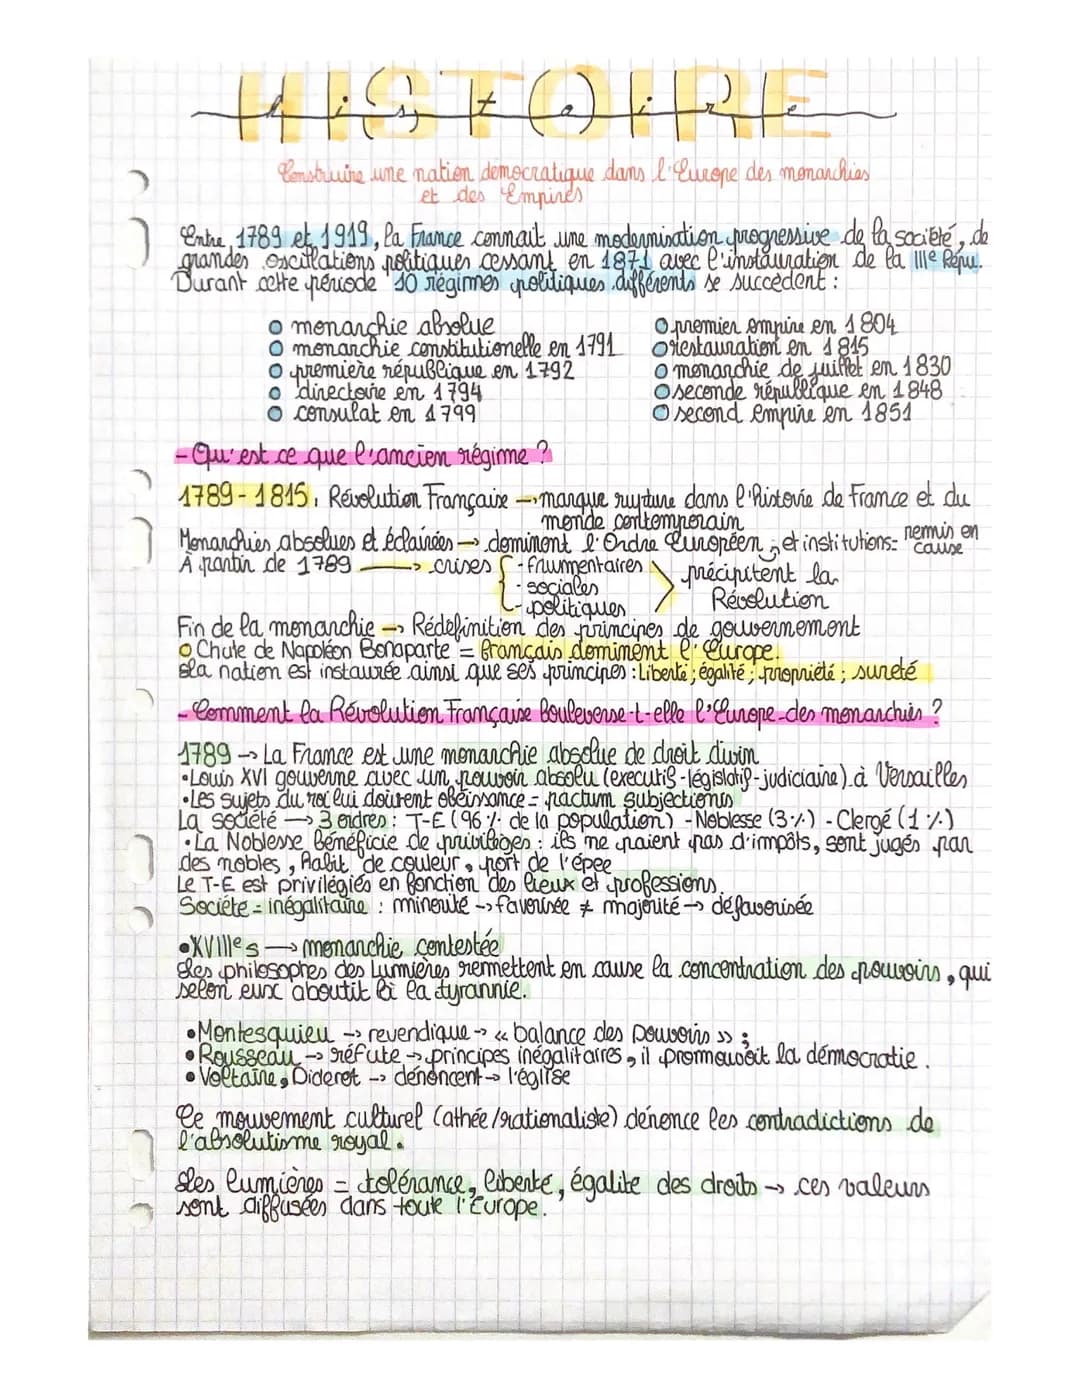 HISTOIRE
histoire
Construire une nation democratique dans l'Europe des monarchies
et des Empires
Entre 1789 et 1919, la France connait une modernisation progressive de la société, de
grandes oscillations politiques cessant en 1871 avec l'instauration de la IIIe Répu.
Durant cette période 10 régimes politiques différents se succèdent :
monarchie absolue
monarchie constitutionelle en 1791
première république en 1792
directoire en 1794
consulat en 1799
premier empire en 1804
restauration en 1815
monarchie de juillet en 1830
seconde république en 1848
second empire en 1851
- Qu'est ce que l'ancien régime ?
1789 - 1815, Révolution Française → marque rupture dans l'histoire de France et du
monde contemporain
Monarchies absolues et éclairées → dominent l'Ordre Européen ; et institutions = remis en
cause
À partir de 1789 → crises - frumentaires
- sociales
- politiques
précipitent la
Révolution
Fin de la monarchie → Rédefinition des principes de gouvernement
Chute de Napoléon Bonaparte = français dominent l'Europe.
La nation est instaurée ainsi que ses principes : Liberté ; égalité ; propriété ; sureté
- Comment la Révolution Française bouleverse-t-elle l'Europe des monarchies ?
1789 → La France est une monarchie absolue de droit divin
• Louis XVI gouverne avec un pouvoir absolu (executif - législatif - judiciaire) à Versailles
• Les sujets du roi lui doivent obeissance = pactum subjectionis
La société → 3 ordres : T-E (96 % de la population) - Noblesse (3 %) - Clergé (1 %)
• La Noblesse bénéficie de privilèges : ils ne paient pas d'impôts, sont jugés par
des nobles, habit de couleur, port de l'épee
Le T-E est privilégiés en fonction des lieux et professions.
Sociéte = inégalitaire : minorité → favorisée ≠ majorité → défavorisée
• XVIIIe s → monarchie contestée
Les philosophes des Lumières remettent en cause la concentration des pouvoirs, qui
selon eux aboutit à la tyrannie.
• Montesquieu → revendique → « balance des Pouvoirs » ;
• Rousseau → réfute → principes inégalitaires, il promouvoit la démocratie.
• Voltaire, Diderot → dénoncent → l'église
Ce mouvement culturel (athée/rationaliste) dénonce les contradictions de
l'absolutisme royal.
Les lumières = tolérance, liberté, égalite des droits → ces valeurs
sont diffusées dans toute l'Europe.